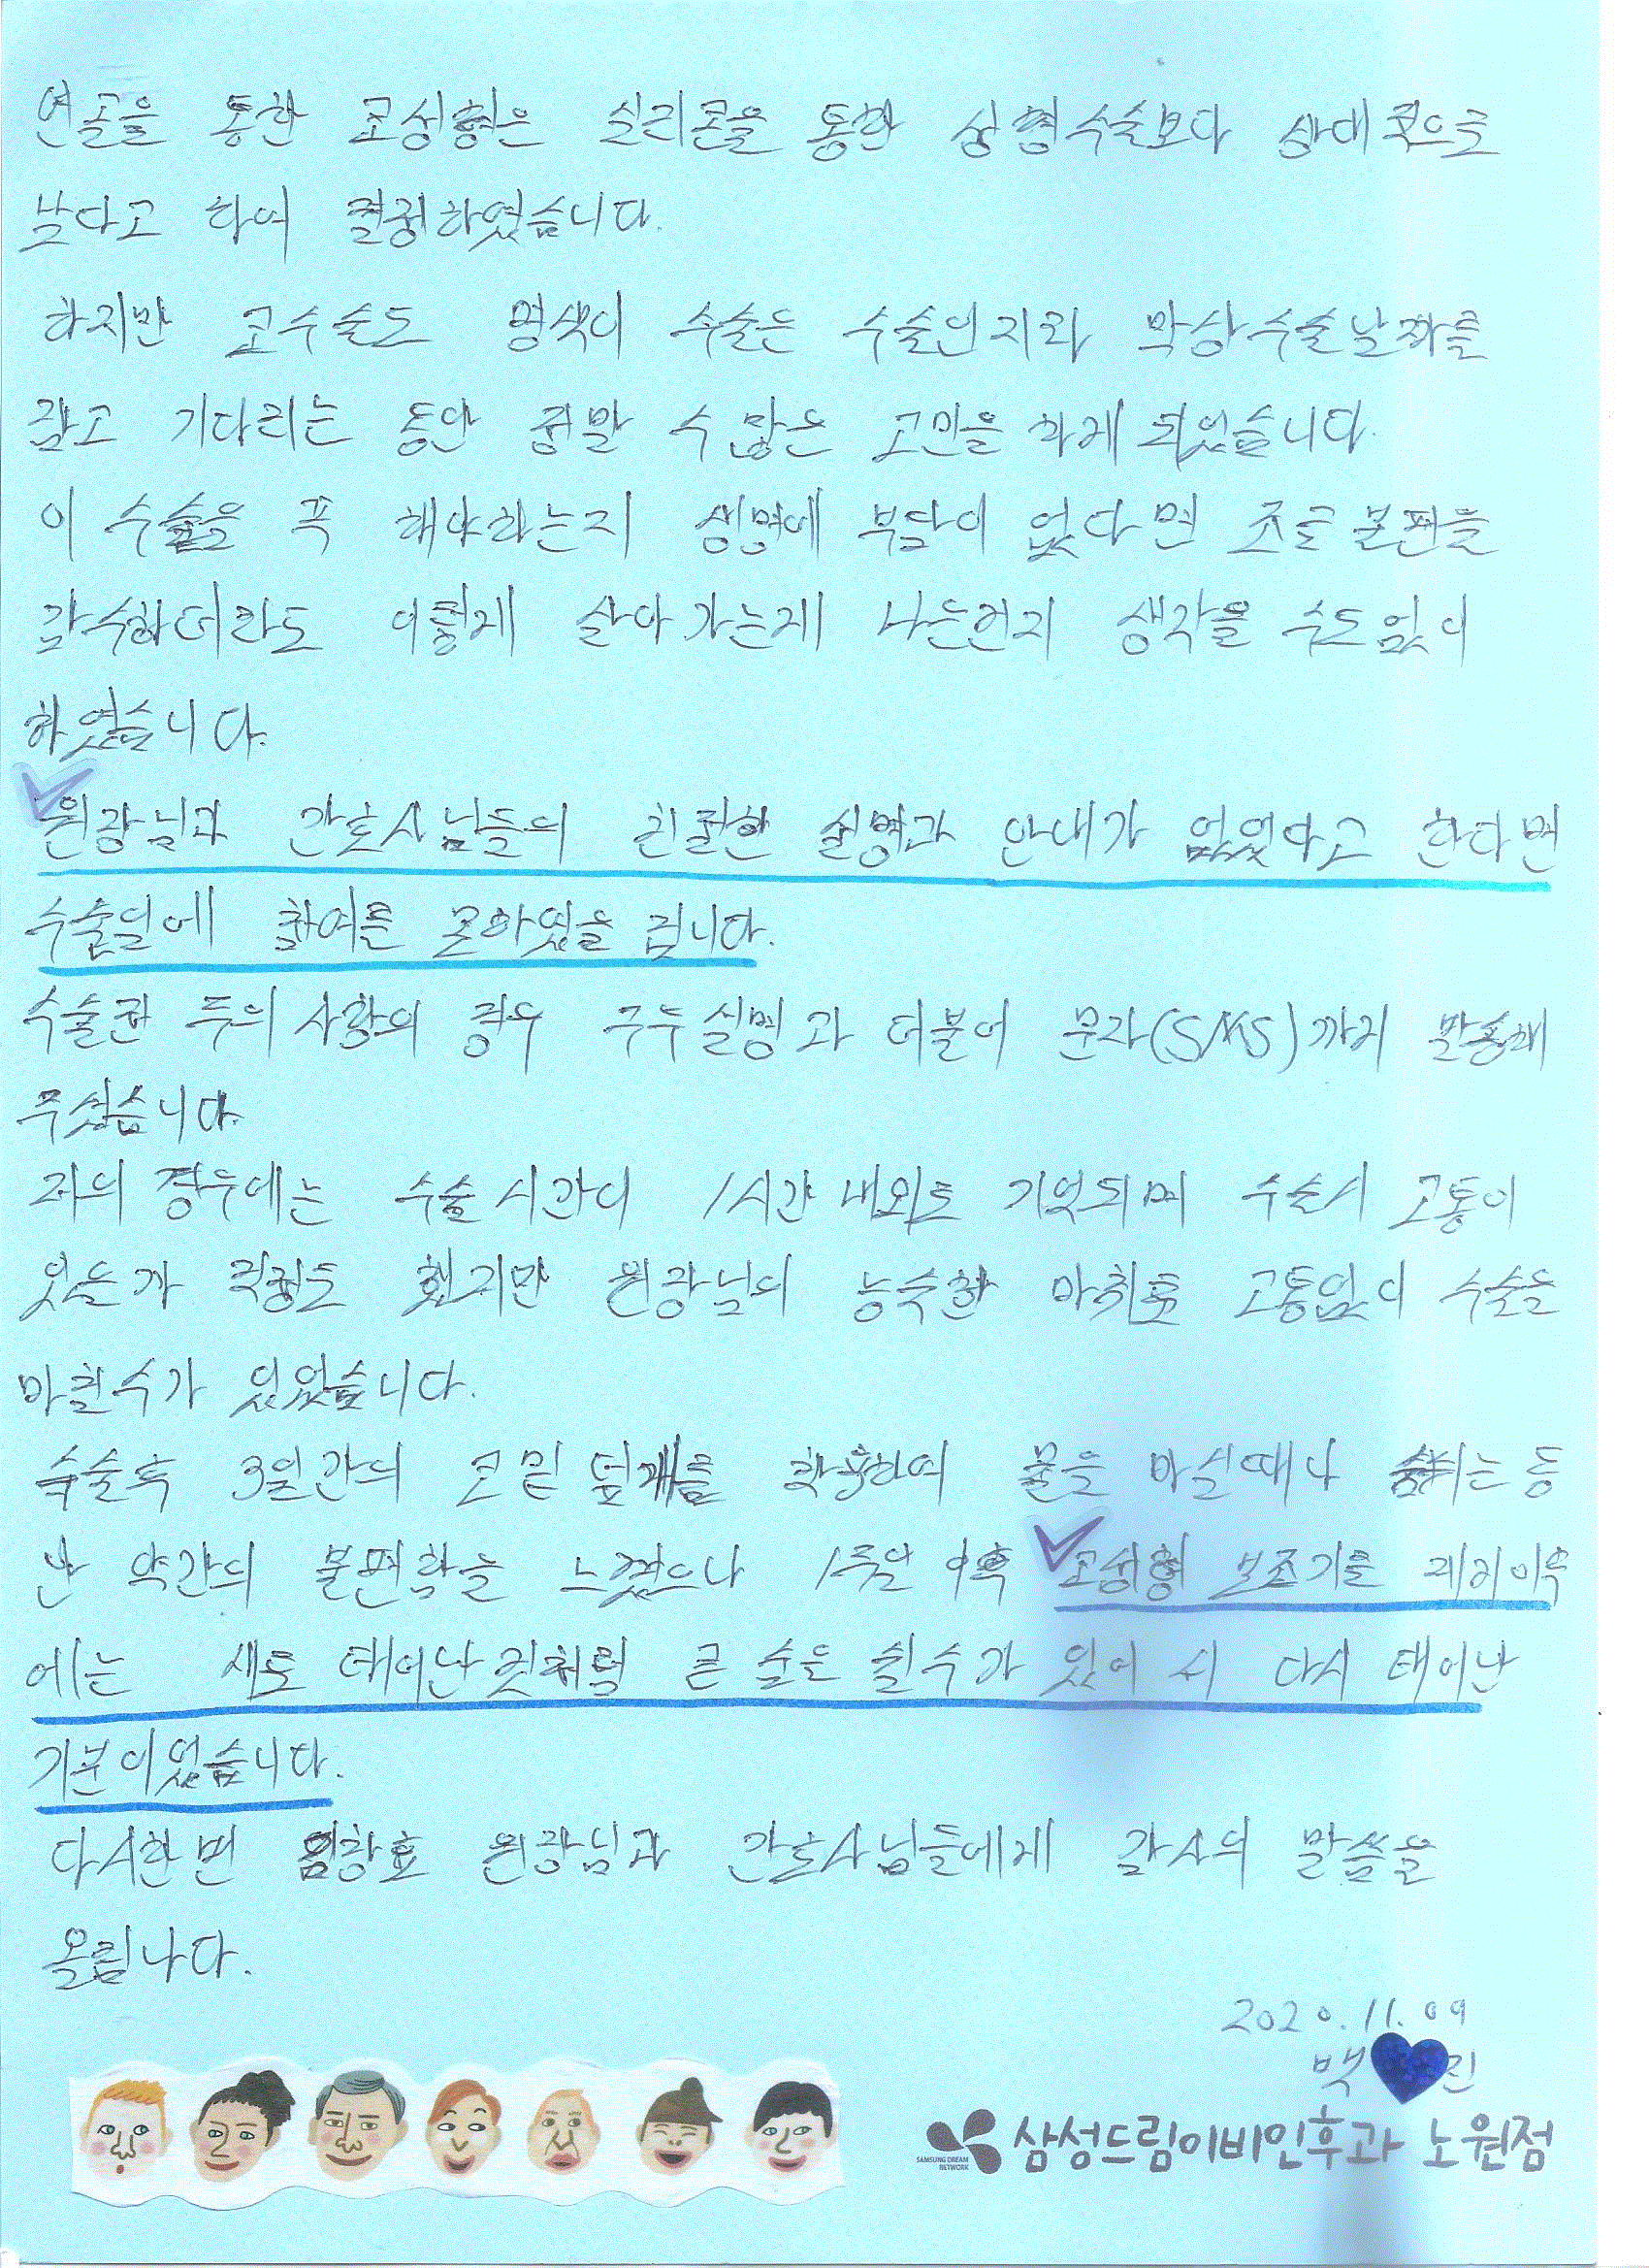 연골을 통한 코성형은 실리콘을 통한 성형수술보다 상대적으로
낫다고 하여 결정하였습니다.
하지만 코수술도 명색이 수술은 수술인지라 막상수술날짜를
잡고 기다리는 동안 정말 수 많은 고민을 하게 되었습니다.
이 수술을 꼭 해야하는지 생명에 부담이 없다면 조금 불편을
감수하더라도 이렇게 살아가는게 나은건지 생각을 수도없이
하였습니다.
원장님과 간호사님들의 친절한 설명과 안내가 없었다고 한다면
수술일에 참여를 못하였을 겁니다.
수술전 주의사항의 경우 구두설명과 더불어 문자(SMS)까지 발송해
주셨습니다.
저의 경우에는 수술시간이 1시간 내외로 기억되며 수술시 고통이
있을까 걱정도 했지만 원장님의 능숙한 마취로 고통없이 수술을
마칠수가 있었습니다.
수술후 3일간의 코밑 덮개를 착용하여 물을 마실때나 숨쉬는 등
난 약간의 불편함을 느꼈으나 1주일 이후 코성형 보조기를 제거이후
에는 새로 태어난것처럼 큰 숨을 쉴수가 있어서 다시 태어난
기분이었습니다.
다시한번 창호 원장님과 간호사님들에게 감사의 말씀을
올림니다.
2020.11.09
백 진
SAMSUNG DREAM
NETWORK
삼성드림이비인후과 노원점